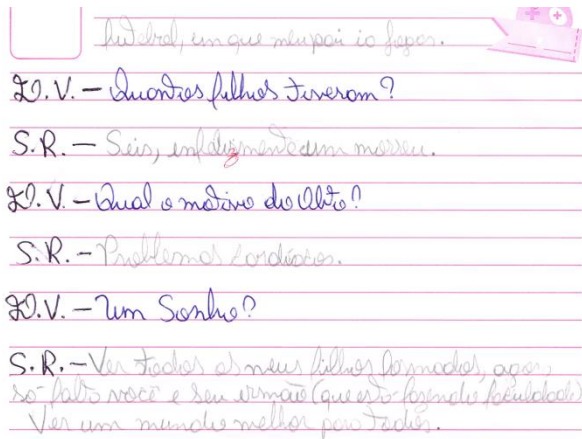 futebol, em que meu pai ia jogar.
D.V. - Quantos filhos tiveram?
S.R. - Seis, infelizmente um morreu.
D.V. - Qual o motivo do Obto?
S.R. - Problemas cardíacos.
D.V. - Um Sonho?
S.R. - Ver todos os meus filhos formados, agora,
só falta você e seu irmão (que está fazendo faculdade)
Ver um mundo melhor para todos.